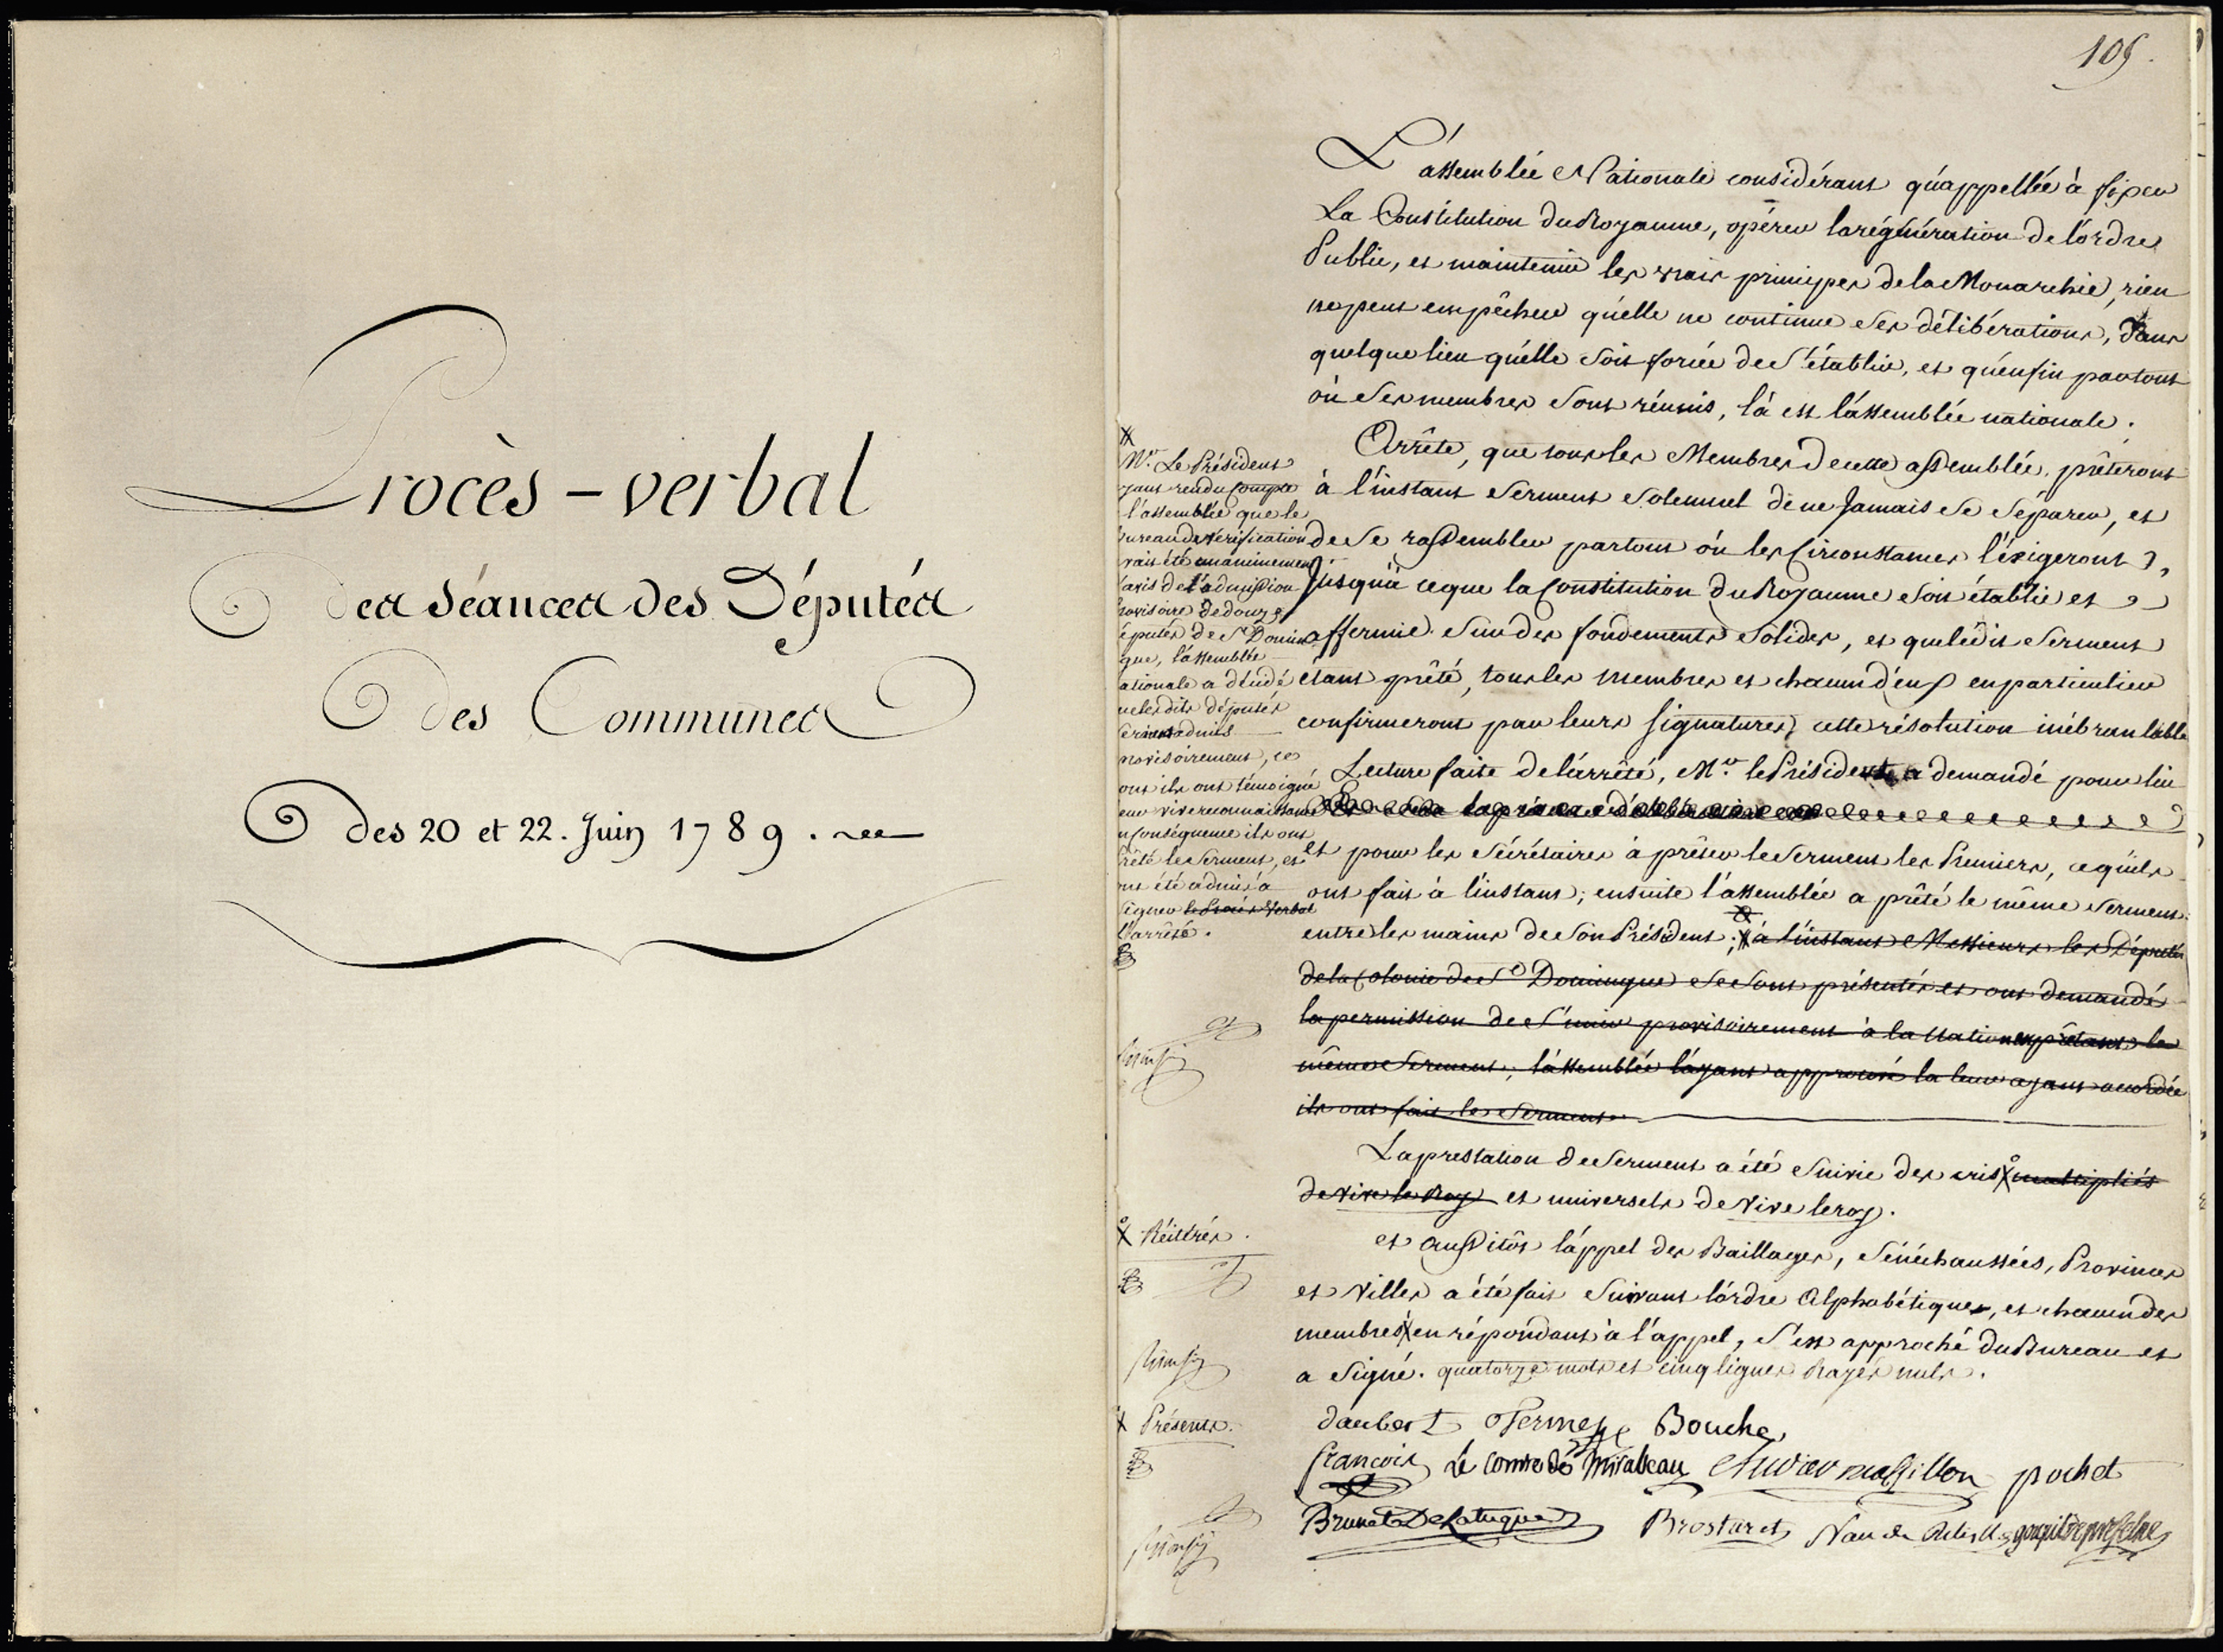 Procès-verbal
des séances des Députés
des Communes
des 20 et 22. Juin 1789.
105.
L'assemblée Nationale considérant qu'appellée à fixer
La Constitution du Royaume, opérer la régénération de l'ordre
Public, et maintenir les vrais principes de la Monarchie, rien
ne peut empêcher qu'elle ne continue ses délibérations, dans
quelque lieu qu'elle soit forcée de s'établir, et qu'enfin partout
où ses membres sont réunis, là est l'assemblée nationale.
Arrête, que tous les Membres de cette assemblée prêteront
à l'instant Serment Solemnel de ne Jamais se séparer, et
de se rassembler partout où les Circonstances l'éxigeront,
Jusqu'à ce que la Constitution du Royaume soit établie et
affermie sur des fondements solides, et que ledit Serment
étant prêté, tous les membres et chacun d'eux en particulier
confirmeront par leurs signatures cette résolution inébranlable
Lecture faite de l'arrêté, Mr. le Président a demandé pour lui
et pour les Sécrétaires à prêter le Serment les Premiers, ce qu'ils
ont fait à l'instant; ensuite l'assemblée a prêté le même Serment
entre les mains de son Président; à l'instant Messieurs les Députés
de la Colonie de St Domingue se sont présentés et ont demandé
la permission de s'unir provisoirement à la Nation en prêtant le
même Serment, l'assemblée l'ayant approuvé la leur ayant accordée
ils ont fait le Serment.
La prestation de Serment a été suivie des cris multipliés
de vive le Roy et universels de Vive le roy.
et aussitôt l'appel des Baillages, Sénéchaussées, Provinces
et Villes a été fait suivant l'ordre Alphabétique, et chacun des
membres en répondant à l'appel, s'est approché du Bureau et
a Signé. quatorze mots et cinq lignes Rayés nuls.
Mr. Le Président
yant rendu compte
l'assemblée que le
bureau de Vérification
vait été unanimement
'avis de l'admission
provisoire de douze
éputés de St Domin
gue, l'assemblée
ationale a décidé
ue les dits députés
seraient admis
provisoirement, ce
ont ils ont témoigné
eur vive reconnaissance
n Conséquence ils ont
rêté le Serment, et
nt été admis à
signer le Procès Verbal
l'arrêté.
Réitérés.
Présents.
daubert Bouche
françois Le Comte de Mirabeau Andrieu massillon pochet
Brunet De Latuque Brostaret goupil de prefelne